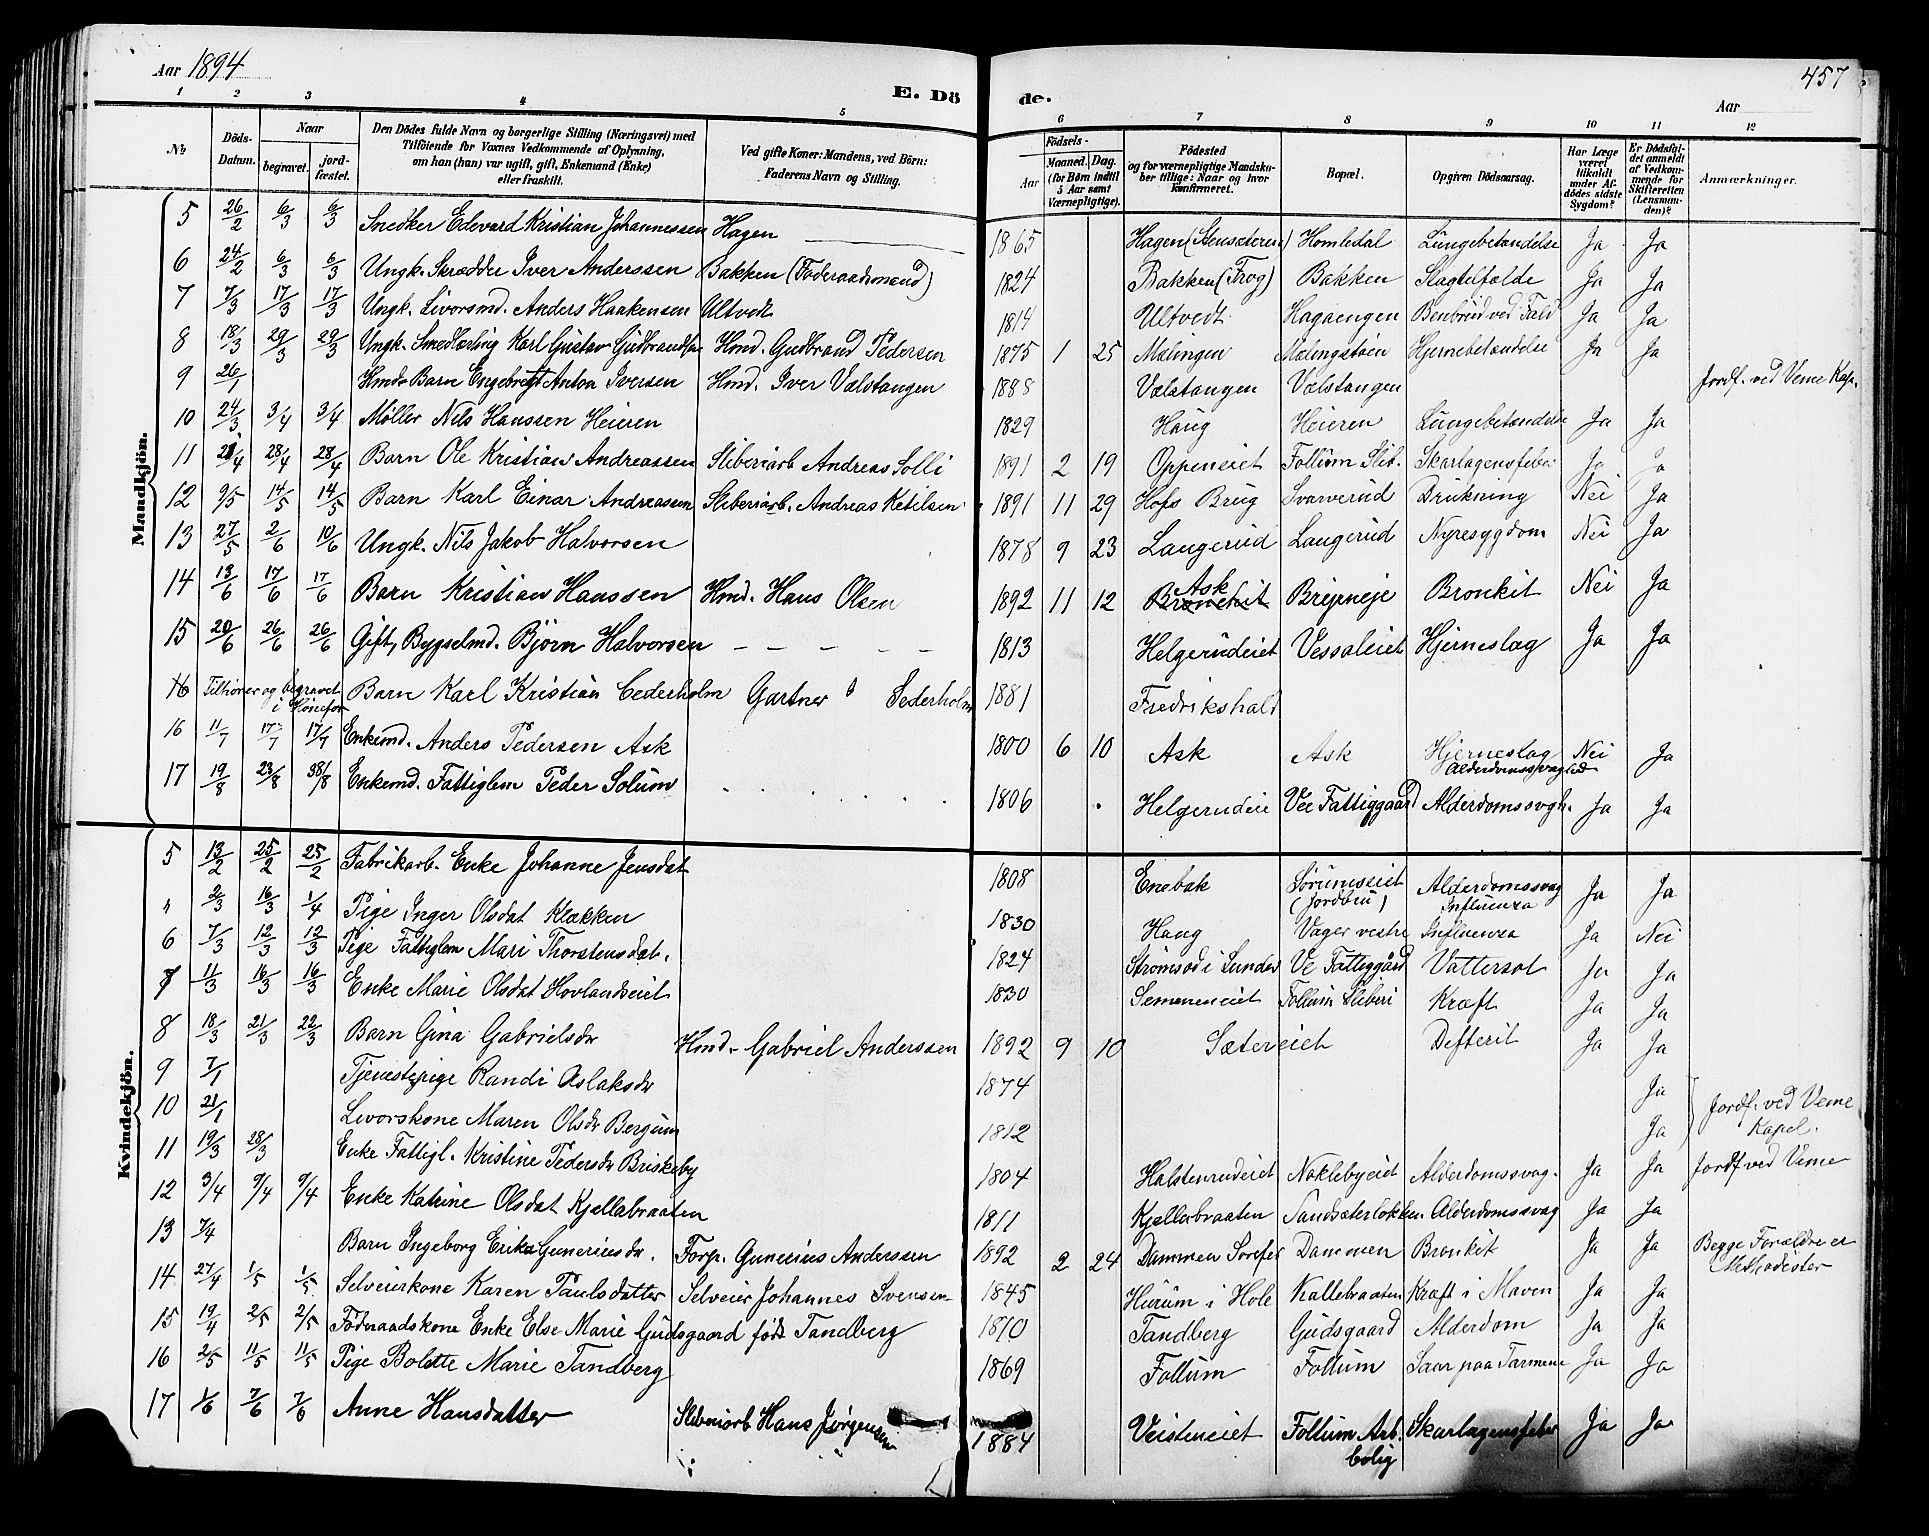 Aar 1894
457
E. Dö de.
Aar
1 2 3 4 5 6 7 8 9 10 11 12
№ Döds-Datum. Naar begravet. jordfæstet. Den Dödes fulde Navn og borgerlige Stilling (Næringsvei) med Tilföiende for Voxnes Vedkommende af Oplysning, om han (hun) var ugift, gift, Enkemand (Enke) eller fraskilt. Ved gifte Koner: Mandens, ved Börn: Faderens Navn og Stilling. Födsels- Aar Maaned. Dag. (for Börn indtil 5 Aar samt Værnepligtige). Födested og for værnepligtige Mandskaber tillige: Naar og hvor Konfirmeret. Bopæl. Opgiven Dödsaarsag. Har Læge været tilkaldt under Afdödes sidste Sygdom? Er Dödsfaldet anmeldt af Vedkommende for Skifteretten (Lensmanden)? Anmærkninger.
Mandkjön.
5 26/2 6/3 6/3 Snedker Edevard Kristian Johannessen Hagen 1865 Hagen (Stensæteren) Homledal Lungebetændelse Ja Ja
6 24/2 6/3 6/3 Ungk. Skrædder Iver Anderssen Bakken (Föderaadsmand) 1824 Bakken (Frog) Bakken Slagtilfælde Ja Ja
7 7/3 17/3 17/3 Ungk. Livorsmd. Anders Haakensen Ultvedt 1814 Ultvedt Hagaengen Benbrud ved Fald Ja Ja
8 18/3 29/3 29/3 Ungk. Smedlærling Karl Gustav Gudbrandsen Hmd. Gudbrand Pedersen 1875 1 25 Mælingen Mælingstøen Hjernebetændelse Ja Ja
9 26/1 Hmds Barn Engebregt Anton Iversen Hmd. Iver Vælstangen 1888 Vælstangen Vælstangen Jordf. ved Veme Kap.
10 24/3 3/4 3/4 Møller Nils Hanssen Heieren 1829 Haug Heieren Lungebetændelse Ja Ja
11 21/4 28/4 28/4 Barn Ole Kristian Andreassen Sliberiarb Andreas Solli 1891 2 19 Oppeneiet Follum Slib. Skarlagensfeber Ja Ja
12 9/5 14/5 14/5 Barn Karl Einar Andreassen Sliberiarb. Andreas Ketilsen 1891 11 29 Hofs Brug Svarverud Drukning Nei Ja
13 27/5 2/6 10/6 Ungk. Nils Jakob Halvorsen 1878 9 23 Langerud Langerud Nyresygdom Nei Ja
14 13/6 17/6 17/6 Barn Kristian Hanssen Hmd. Hans Olsen 1892 11 12 Ask Breieneje Bronkit Nei Ja
15 20/6 26/6 26/6 Gift, Bygselmd. Björn Halvorsen 1813 Helgerudeiet Vessaleiet Hjerneslag Ja Ja
16 Tilhører og begravet i Hönefos Barn Karl Kristian Cederholm Gartner Sederholm 1881 Fredrikshald
16 11/7 17/7 17/7 Enkemd. Anders Pedersen Ask 1800 6 10 Ask Ask Hjerneslag Alderdomssvaghed Nei Ja
17 19/8 23/8 Enkemd. Fattiglem Peder Solum 1806 Helgerudeie Vee Fattiggaard Alderdomssvgh. Ja Ja
Kvindekjön.
5 13/2 25/2 25/2 Fabrikarb. Enke Johanne Jensdat 1808 Enebak Sørumseiet (Jordbru) Alderdomssvag Influenza Ja Ja
" 2/3 16/3 1/4 Pige Inger Olsdat Klækken 1830 Haug Vager vestre Influenza Ja Nei
6 7/3 12/3 12/3 Pige Fattiglem Mari Thorstensdat. 1824 Strømsod i Lunder Ve Fattiggård Vattersot Ja Ja
7 11/3 16/3 16/3 Enke Marie Olsdat Hovlandseiet 1830 Semmeneiet Follum Sliberi Kræft Ja Ja
8 18/3 21/3 22/3 Barn Gina Gabrielsdr Hmd. Gabriel Anderssen 1892 9 10 Sætereiet Defterit Ja Ja
9 7/1 Tjenestepige Randi Aslaksdr 1874 Ja
10 21/1 Livorskone Maren Olsdr Bergum 1812 Ja Jordf. ved Veme Kapel.
11 19/3 28/3 Enke Fattigl. Kristine Pedersdr Briskeby 1804 Halstenrudeiet Naklebyeiet Alderdomssvag. Ja Ja Jordf ved Veme
12 3/4 9/4 9/4 Enke Katrine Olsdat Kjellabraaten 1811 Kjellerbraaten Sandsæterløkken Alderdomssvag Ja Ja
13 7/4 Barn Ingeborg Erika Guneriusdr. Forp. Gunerius Anderssen 1892 2 24 Dammen Dammen Bronkit Ja Ja Begge Forældre er Methodister
14 27/4 1/5 1/5 Selveierkone Karen Paulsdatter Selveier Johannes Svensen 1845 Hurum i Hole Kallebraaten Kræft i Maven Ja Ja
15 19/4 2/5 2/5 Föderaadskone Enke Else Marie Gudsgaard föds Tandberg 1810 Tandberg Gudsgaard Alderdom Ja Ja
16 2/5 11/5 11/5 Pige Bolette Marie Tandberg 1869 Follum Follum Saar paa Tarmene Ja Ja
17 1/6 7/6 7/6 Anne Hansdatter Sliberiarb Hans Jørgensen 1884 Veisteneiet Follum Arb. bolig Skarlagensfeber Ja Ja